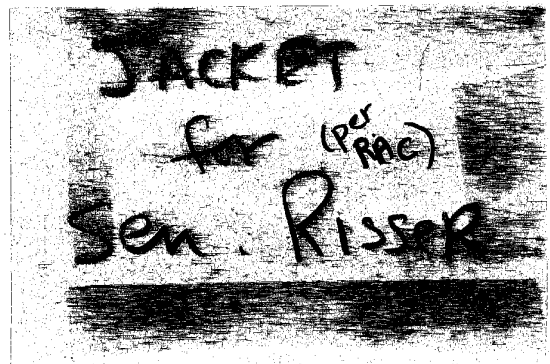 JACKET
for (per RAC)
Sen. Risser